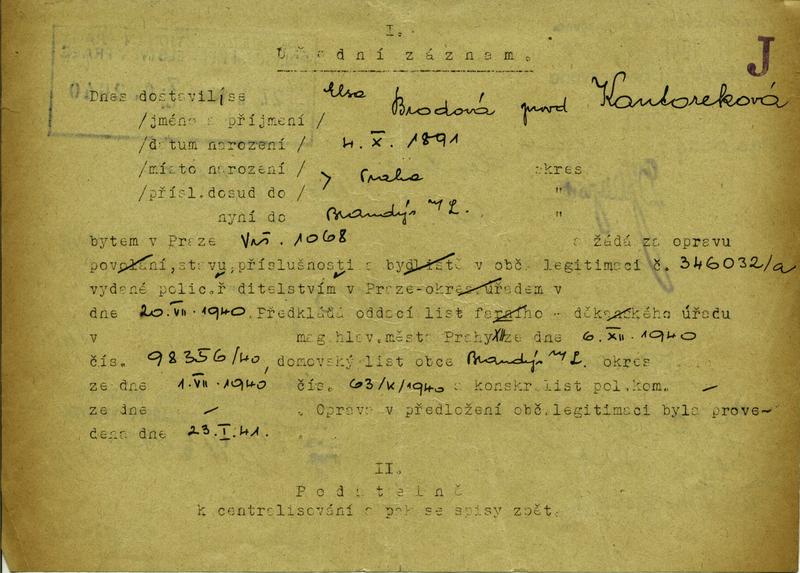 I.
J
Úřední záznam.
Dnes dostavil/se Elsa Brodová provd Kantoreková
/jméno a příjmení/
/datum narození/ 4. X. 1891
/místo narození/ Praha okres
/přísl.dosud do / "
nyní do Brandýs n/L. "
bytem v Praze VIII. 1068 a žádá za opravu
povolání,stavu,příslušnosti a bydliště v obč.legitimaci č. 346032/a
vydané polic.ř ditelstvím v Praze-okres.úřadem v
dne 20.VII.1940.Předkládá oddací list farního - děkanského úřadu
v mag.hlav.města Prahy XII ze dne 6.XII.1940
čís. 98356/40, domovský list obce Brandýs n/L. okres
ze dne 1.VII.1940 čís. 63/V/1940 a konskr.list pol.kom. —
ze dne — . Oprava v předložení obč.legitimaci byla prove-
dena dne 23.I.41.
II.
Podatelně
k centralisování a pak se spisy zpět.